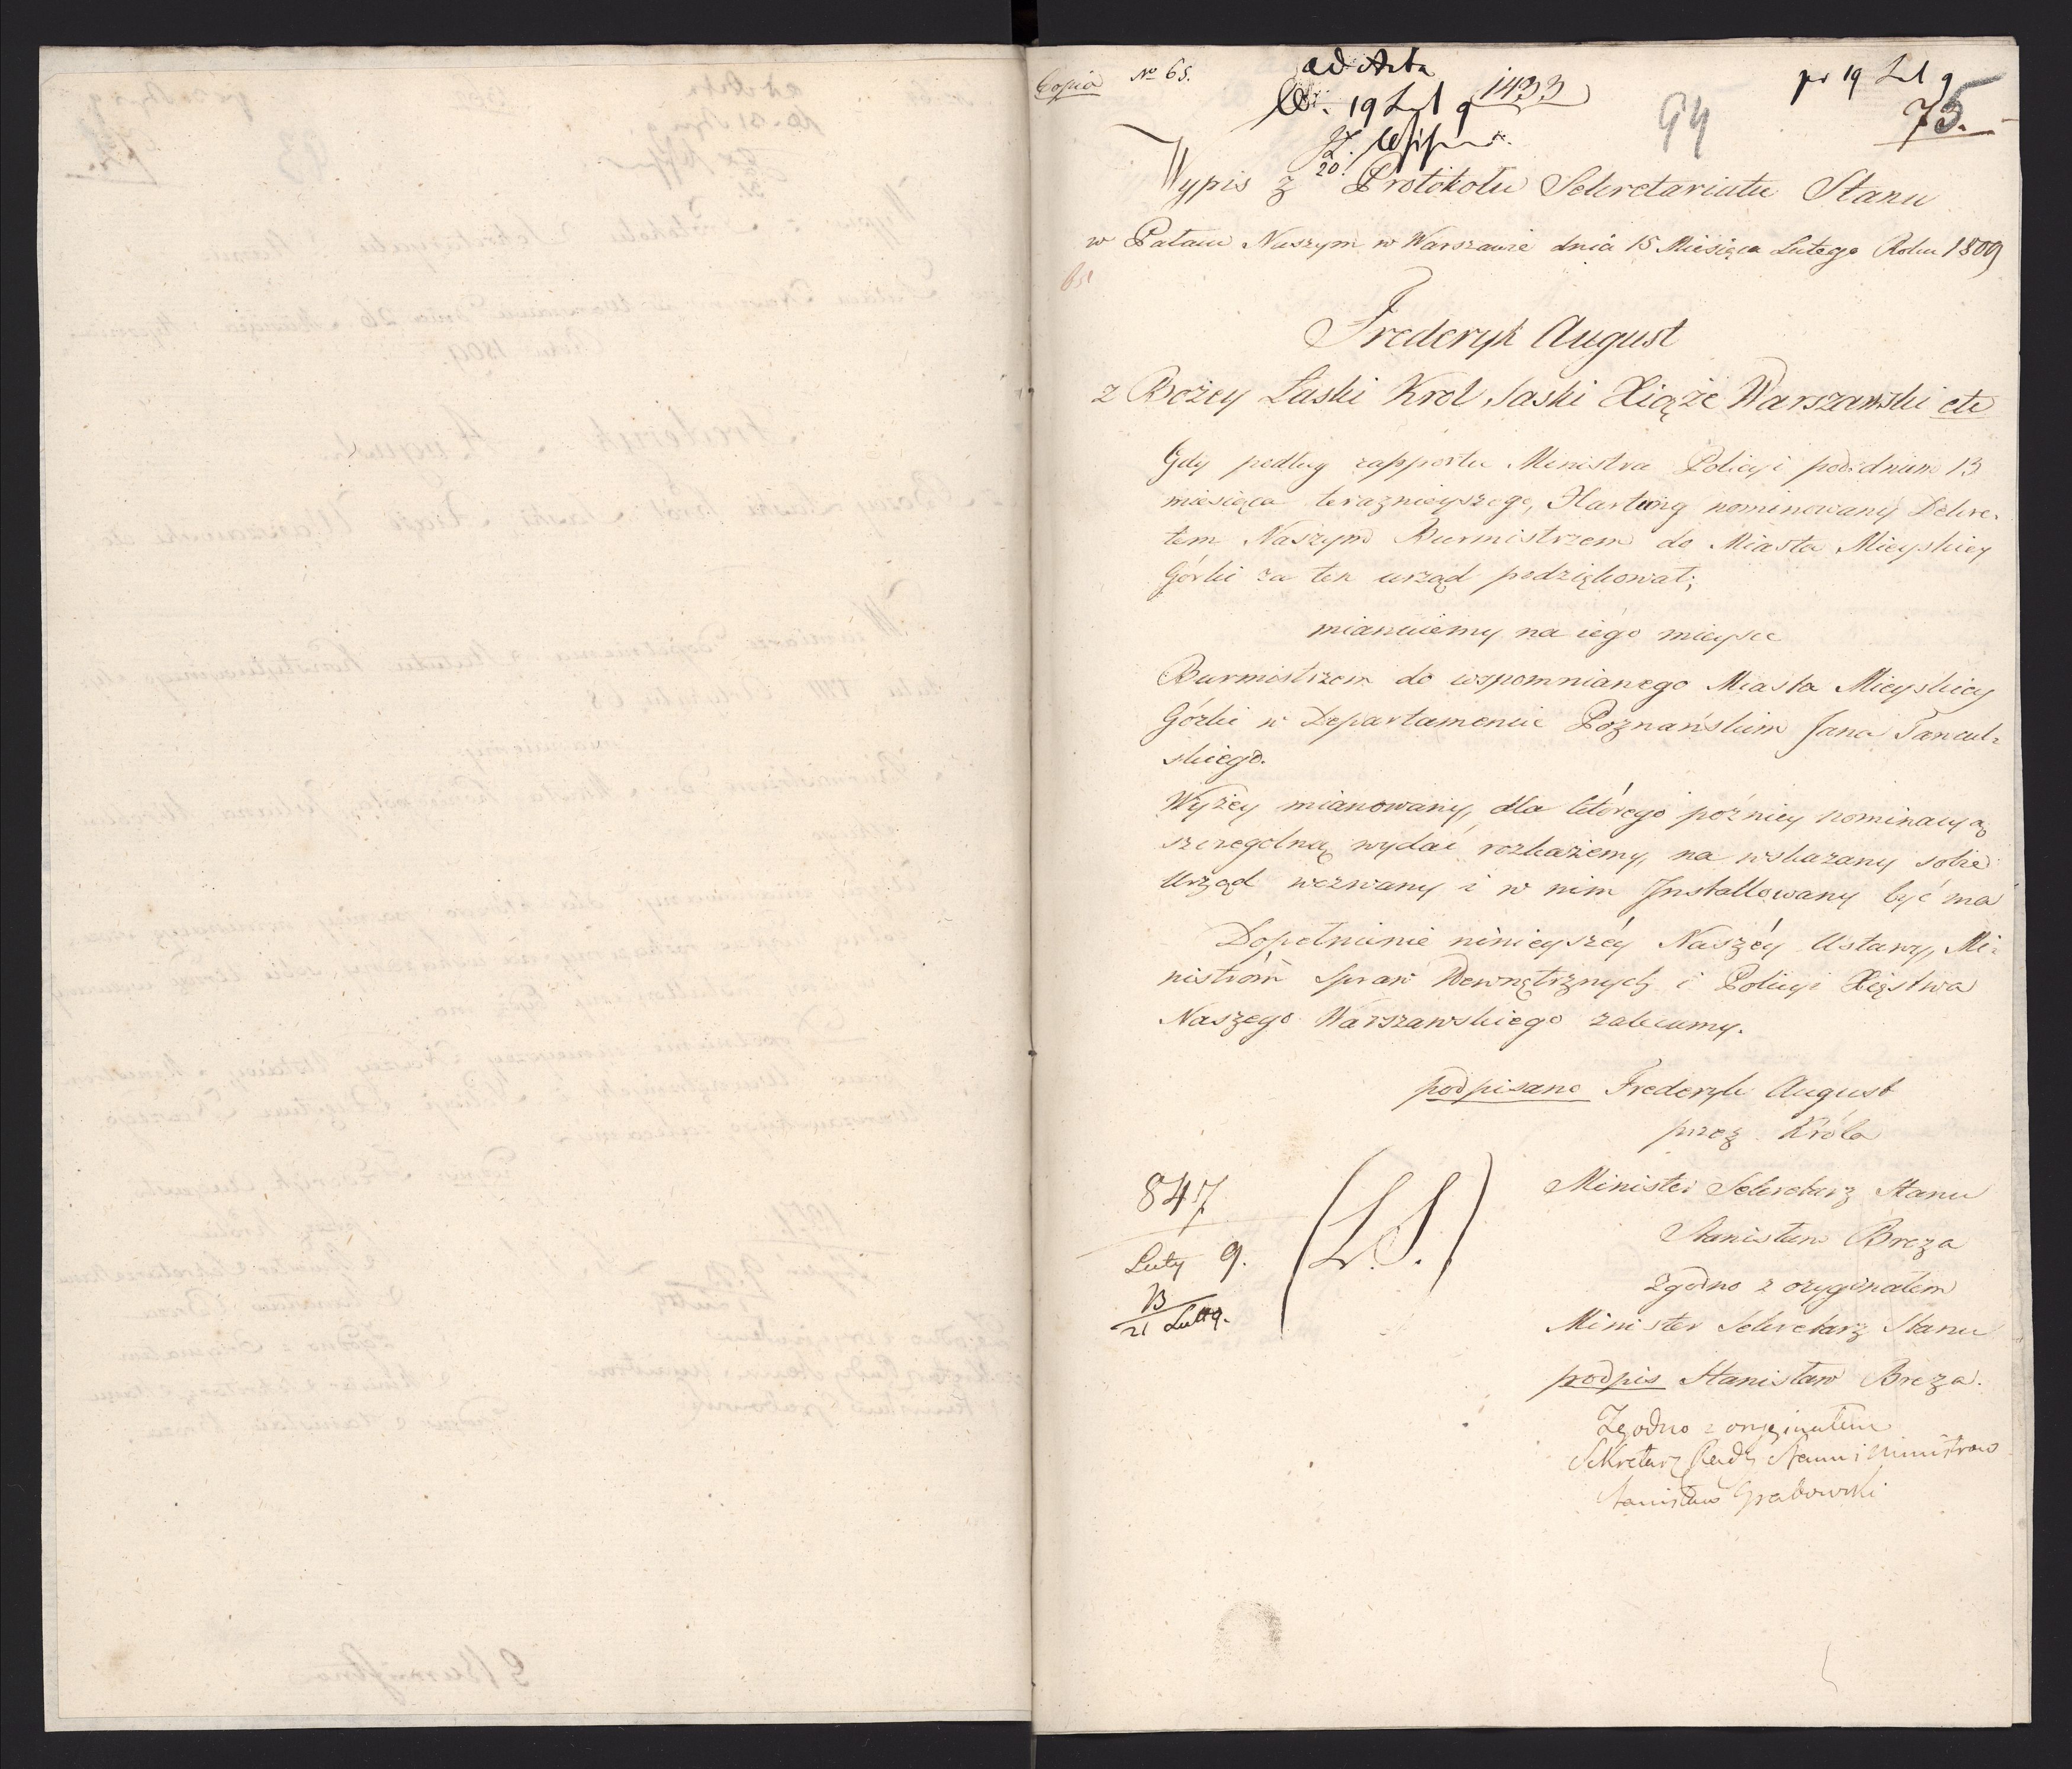 Copia № 65.
ad Acta
19 Lut 9 1433
pr 19 Lut 9
94
75.
20
Wypis z Protokołu Sekretariatu Stanu
w Pałacu Naszym w Warszawie dnia 15 Miesiąca Lutego Roku 1809
Frederyk August
z Bożey Łaski Krol Saski Xiąże Warszawski etc
Gdy podług rapportu Ministra Policyi pod dniem 13
miesiąca teraznieyszego, Hartung nominowany Dekre-
tem Naszym Burmistrzem do Miasta Mieyskiey
Górki za ten urząd podziękował;
mianuiemy na iégo mieysce
Burmistrzem do wspomnianego Miasta Mieyskiey
Górki w Departamencie Poznańskim Jana Tancul-
skiego.
Wyżey mianowany, dla którego poźniey nominacyą
szczegolną wydać rozkażemy, na wskazany sobie
Urząd wezwany i w nim Installowany być ma
Dopełnienie ninieyszéy Naszéy Ustawy, Mi-
nistróm Spraw Wewnętrznych i Policyi Xięstwa
Naszego Warszawskiego zalecamy.
podpisano Frederyk August
przez Króla
Minister Sekretarz Stanu
Stanisław Breza
zgodno z oryginałem
Minister Sekretarz Stanu
podpis Stanisław Breza.
Zgodno z oryginałem
Sekretarz Rady Stanu i Ministrow
Stanisław Grabowski
847
Luty 9.
21 Lut 9.
(L.S.)